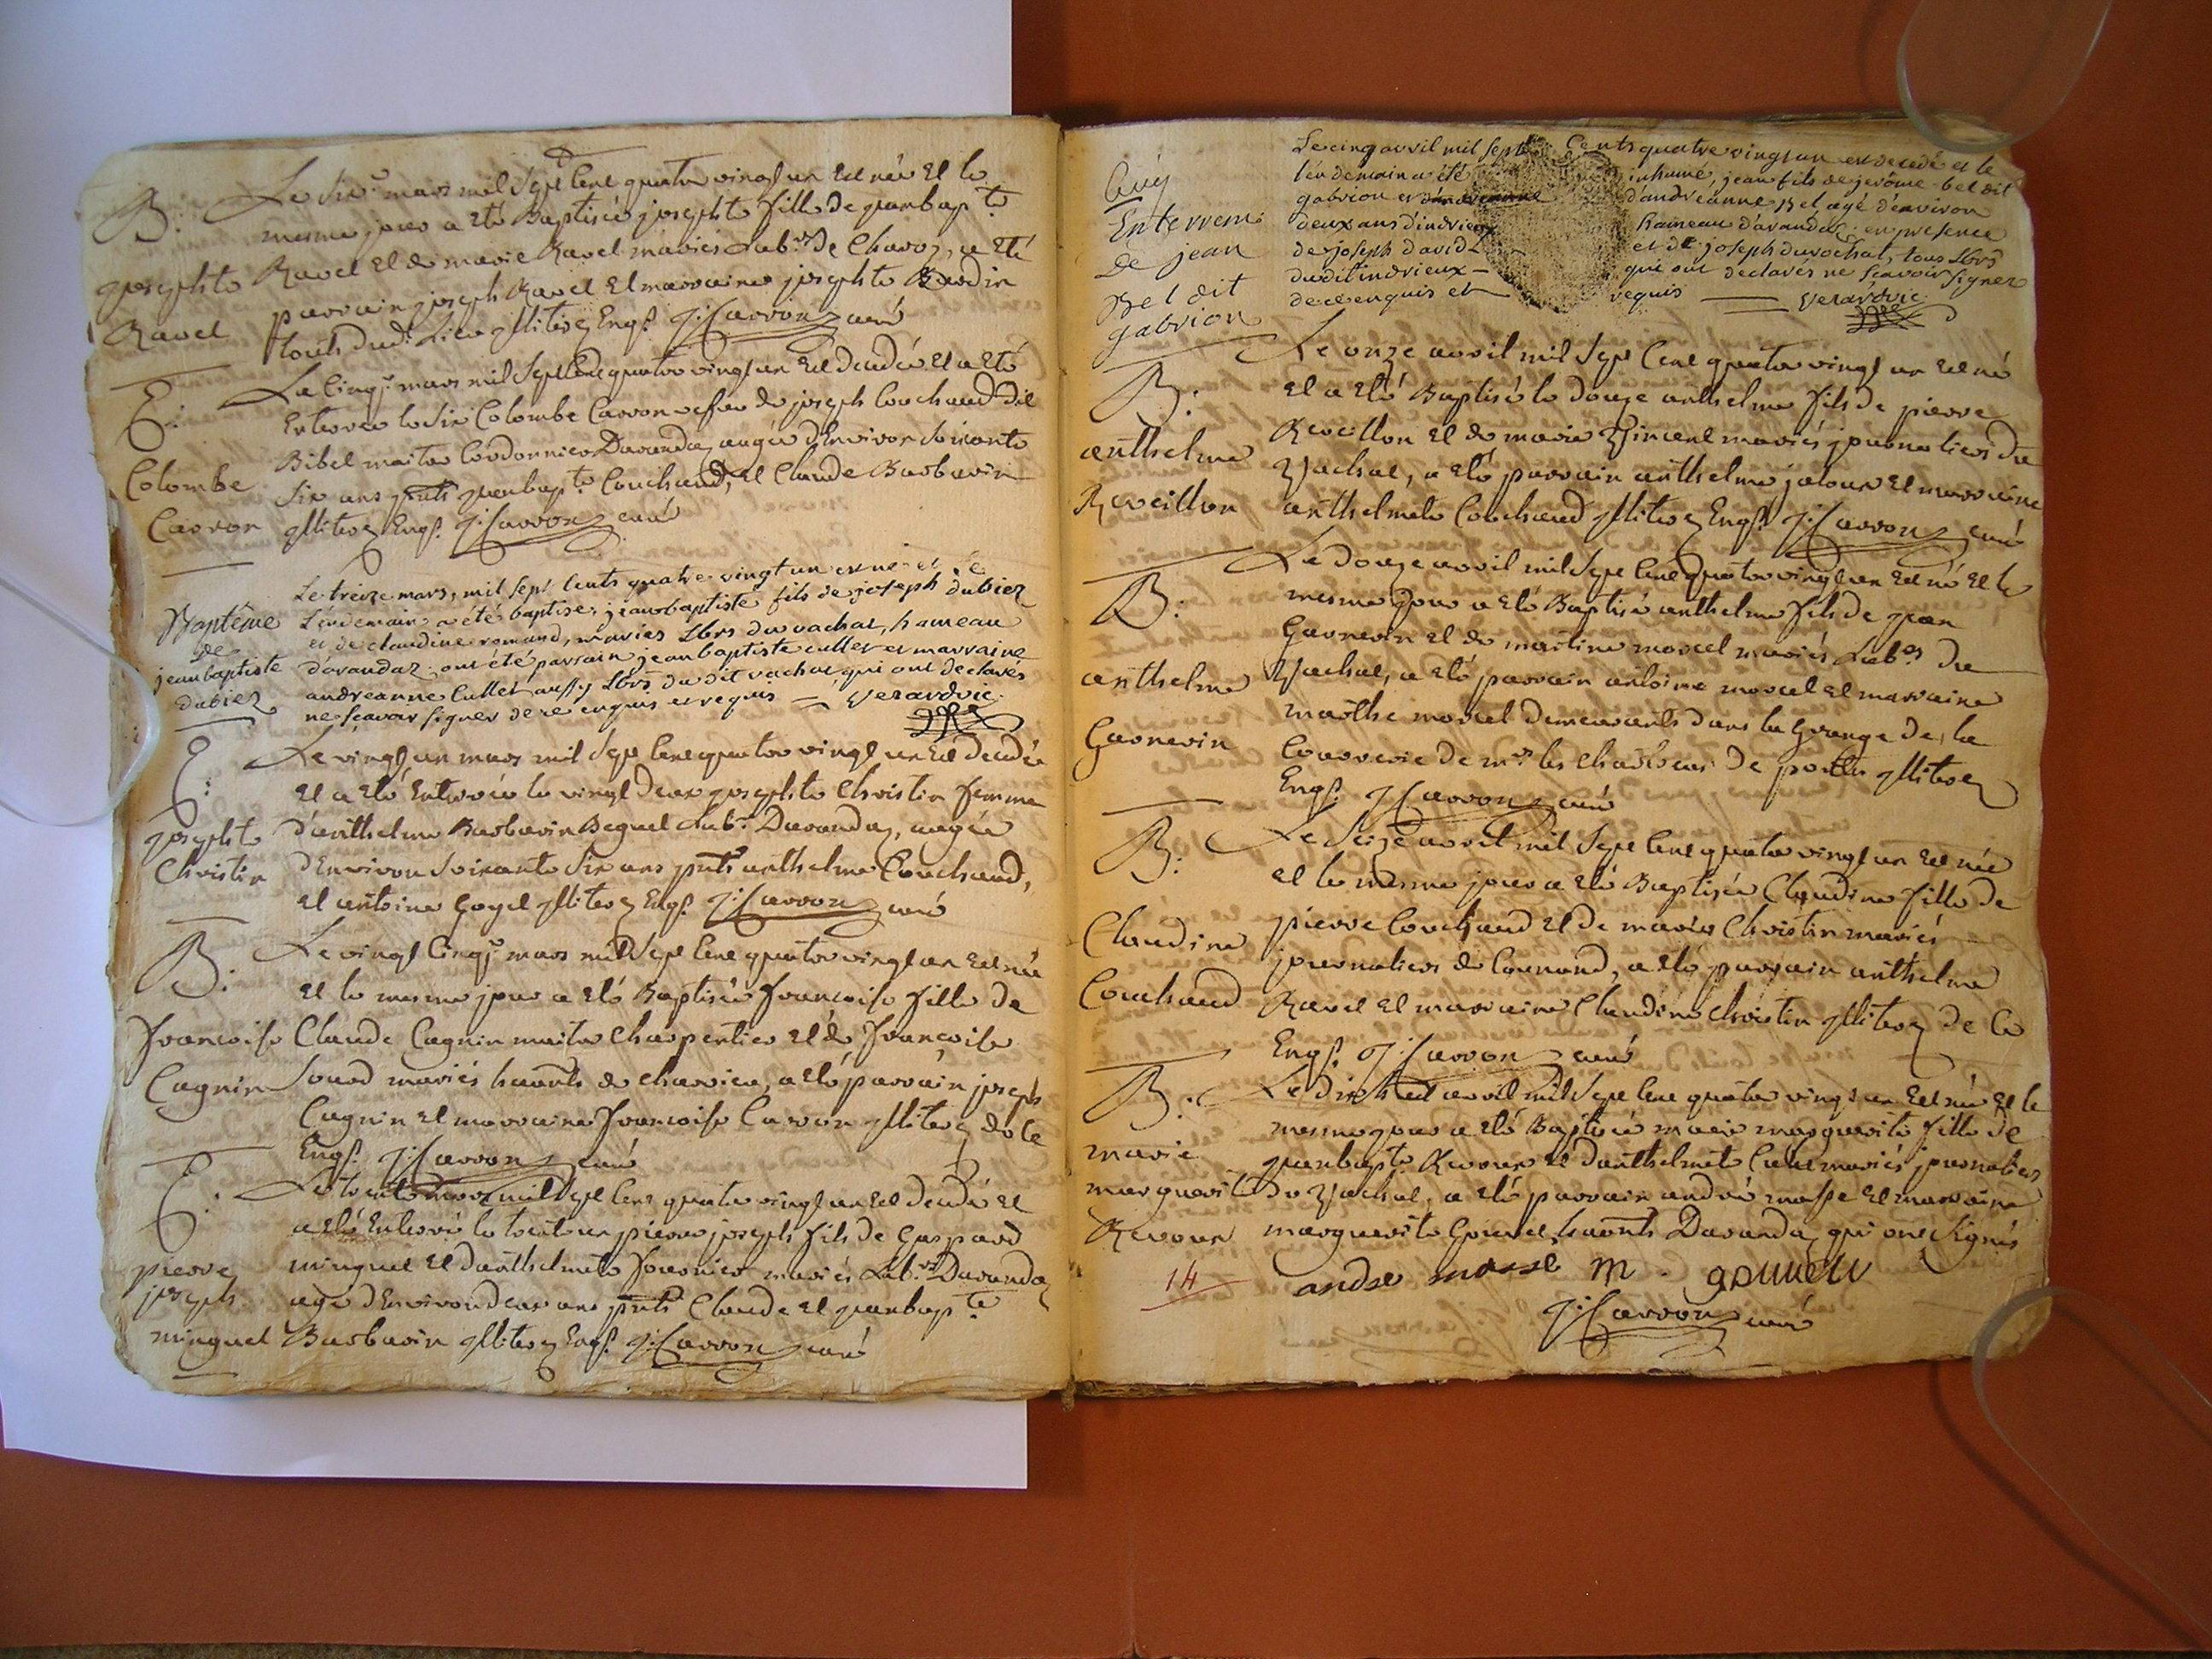 B:
josephte
Ravel
Le six.e mars mil Sept Cent quatre vingt un Est née Et le
mesme jour a Eté Baptisée josephte fille de jeanbap.te
Ravel Et de marie Ravel mariés Lab.rs de Charoz, a Eté
parrain joseph Ravel Et marraine josephte Baudin
touts dud. Lieu illiterez Enq.s J: Carron curé
E:
Colombe
Carron
Le Cinq.e mars mil Sept Cent quatre vingt un Est decedée Et a Eté
Enterrée le Six Colombe Carron vefve de joseph Couchaud dit
Bibel maitre Cordonnier Darandaz aagée d'Environ Soixante
Six ans pnts jeanbap.te Couchaud, Et Claude Barbarin
illiterez Enq.s J: Carron curé
Baptême
de
jeanbaptiste
dubiez
Le treize mars, mil sept Cents quatre-vingt un est né et le
Lendemain a été baptisé, jeanbaptiste fils de joseph dubiez
et de claudine romand, mariés Lbrs du vachat, hameau
darandaz: ont été parrain jeanbaptiste cullet et marraine
andréanne Cullet aussy Lbrs du dit vachat qui ont déclarés
ne sçavoir signer de ce enquis et requis =
E:
josephte
Christin
Le vingt un mars mil Sept Cent quatre vingt un Est decedée
Et a Eté Enterrée le vingt deux josephte Christin femme
d'anthelme Barbarin Beguet Lab.r Darandaz, aagée
d'Environ Soixante Six ans pnts anthelme Couchaud,
Et antoine Goyet illiterez Enq.s J: Carron curé
B:
francoise
Cagnin
Le vingt Cinq.e mars mil Sept Cent quatre vingt un Est née
Et le mesme jour a Eté Baptisée francoise fille de
Claude Cagnin maitre Charpentier Et de francoise
Sourd mariés hants de Charvieu, a Eté parrain joseph
Cagnin Et marraine francoise Carron illiterez de Ce
Enq.s J: Carron curé
E:
pierre
joseph
minguet
Le trente mars mil Sept Cent quatre vingt un Est decedé Et
a Eté Enterré le trente un pierre joseph fils de Gaspard
minguet Et d'anthelmete fournier mariés Lab.rs Darandaz
agé d'Environ deux ans pnts Claude Et jeanbap.te
Barbarin illiterez Enq.s J: Carron curé
Enterrem.
de jean
Bel dit
gabrion
Le cinq avril mil sept Cents quatre vingt un est decedé et le
lendemain a été inhumé, jean fils de jerôme bel dit
gabrion et d'andréanne Bel agé d'environ
deux ans d'indrieux hameau d'arandaz: en presence
de joseph david et de joseph durochat, tous Lbrs
dudit indrieux — qui ont declarés ne sçavoir signer
de ce enquis et requis
B:
anthelme
Reveillon
Le onze avril mil Sept Cent quatre vingt un Est né
Et a Eté Baptisé le douze anthelme fils de pierre
Reveillon Et de marie Vincent mariés journaliers du
Vachat, a Eté parrain anthelme jaloux Et marraine
anthelmete Couchaud illiterez Enq.s J: Carron curé
B:
anthelme
Garnerin
Le douze avril mil Sept Cent quatre vingt un Est né Et le
mesme jour a Eté Baptisé anthelme fils de jean
Garnerin Et de martine morcel mariés Lab.rs du
Vachat, a Eté parrain antoine morcel Et marraine
marthe morcel demeurants dans la Grange de la
Courrerie de m.rs les Chartreux de portes illiterez
Enq.s J: Carron curé
B:
Claudine
Couchaud
Le Seize avril mil Sept Cent quatre vingt un Est née
Et le mesme jour a Eté Baptisée Claudine fille de
pierre Couchaud Et de marie Christin mariés
journaliers de Conand, a Eté parrain anthelme
Ravel Et marraine Claudine Christin illiterez de Ce
Enq.s J: Carron curé
B:
marie
marguerite
Revoux
Le dix huit avril mil Sept Cent quatre vingt un Est née Et le
mesme jour a Eté Baptisée marie marguerite fille de
jeanbap.te Revoux Et d'anthelmete Cullet mariés journaliers
du Vachat, a Eté parrain andré masse Et marraine
marguerite Gouvet, hants Darandaz qui ont Signés
14
andre masse m. gouvet
J: Carron curé